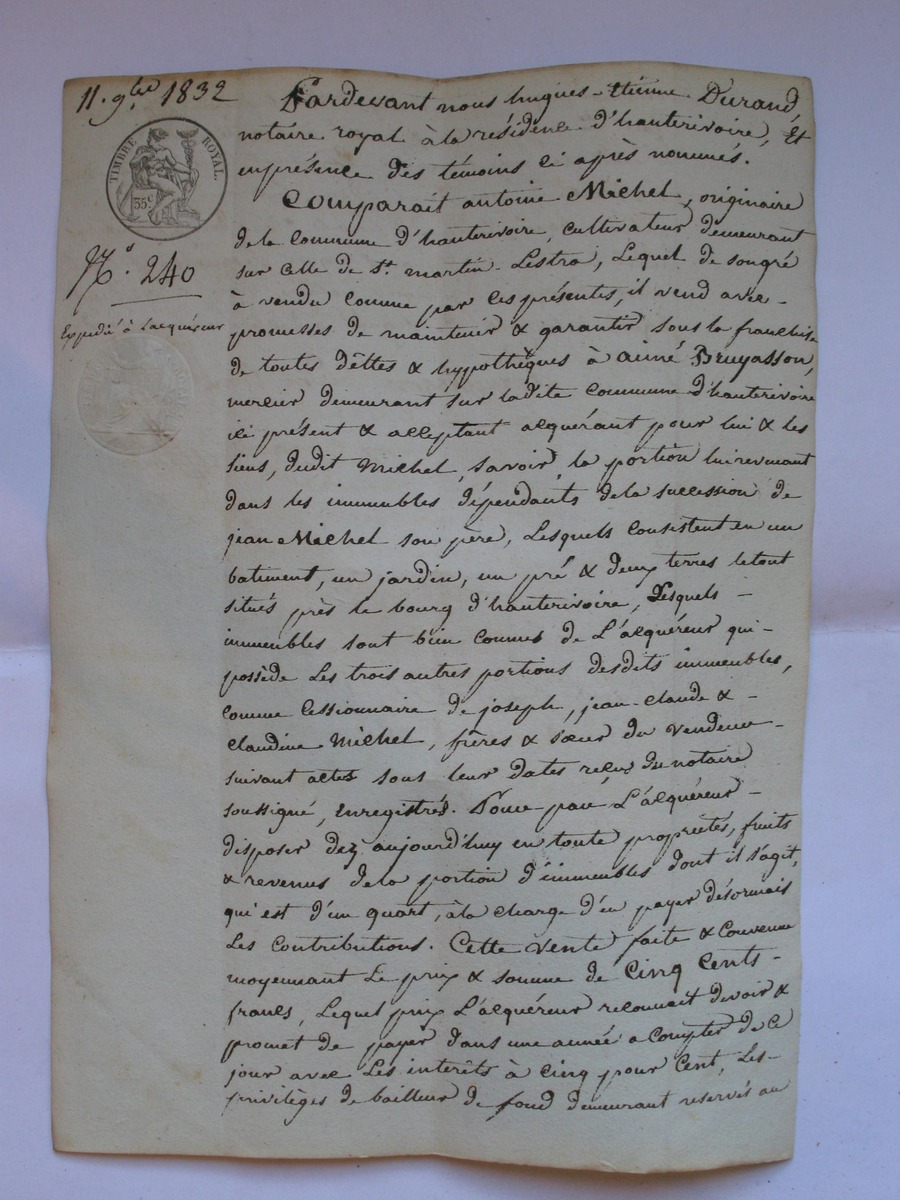 11. 9bre 1832
TIMBRE ROYAL.
35c
No. 240
Expédié à l'acquéreur
Pardevant nous hugues-étienne Durand,
notaire royal à la résidence d'hauterivoire, Et
enprésence des témoins ci après nommés.
Comparait antoine Michel, originaire
de la Commune d'hauterivoire, cultivateur demeurant
sur celle de St. martin-Lestra, Lequel de songré
à vendu comme par Ces présentes, il vend avec
promesses de maintenir & garantir sous la franchise
de toutes dêttes & hypothèques à aimé Bruyasson,
mercier demeurant sur ladite Commune d'hauterivoire
ici présent & acceptant acquérant pour lui & les
siens, dudit Michel, savoir, la portion lui revenant
dans les immeubles dépendants dela succession de
jean Michel son père, Lesquels consistent en un
batiment, un jardin, un pré & deux terres letout
situés près le bourg d'hauterivoire, Lesquels
immeubles sont bien Connus de L'acquéreur qui
possède Les trois autres portions desdits immeubles,
comme Cessionnaire de joseph, jean-claude &
claudine Michel, frères & sœur du Vendeur
suivant actes sous leur dates reçus du notaire
soussigné, Enregistrés. Pour par L'acquéreur
disposer dez aujourd'huy en toute propriétés, fruits
& revenus dela portion d'immeubles dont il s'agit,
qui est d'un quart, àla charge d'en payer désormais
Les Contributions. Cette Vente faite & Convenue
moyennant Le prix & somme de Cinq Cents
francs, Lequel prix L'acquéreur reconnait devoir &
promet de payer dans une année a Compter de Ce
jour avec Les interêts à Cinq pour Cent, Les
privilèges de bailleur de fond demeurant reservés au